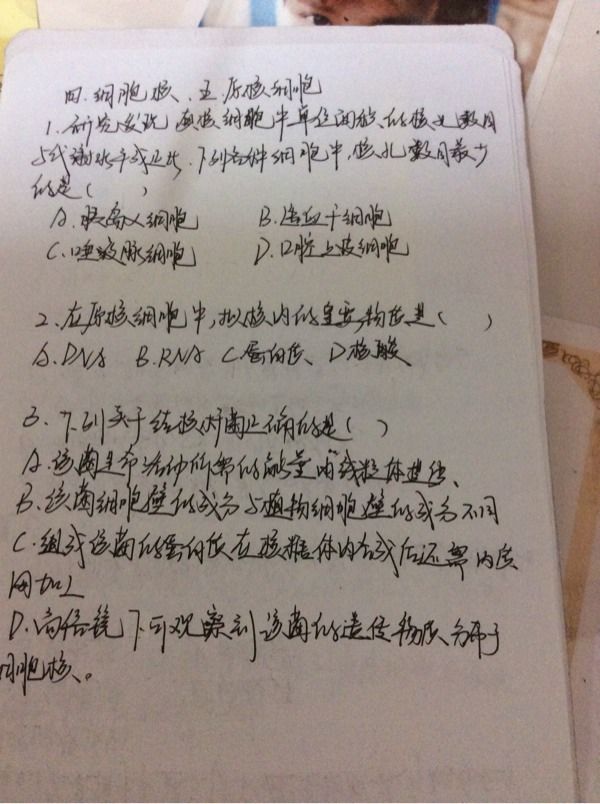 四.细胞核、五.原核细胞
1.研究发现,真核细胞中单位面积的核孔数目
与代谢水平成正比.下列各种细胞中,核孔数目最少
的是( )
A.胰岛细胞 B.造血干细胞
C.唾液腺细胞 D.口腔上皮细胞
2.在原核细胞中,拟核内的主要物质是( )
A.DNA B.RNA C.蛋白质、D.核酸
3.下列关于结核杆菌正确的是( )
A.该菌生命活动所需的能量由线粒体提供、
B.该菌细胞壁的成分与植物细胞壁的成分不同
C.组成该菌的蛋白质在核糖体内合成后还需内质
网加工
D.高倍镜下可观察到该菌的遗传物质分布于
细胞核。